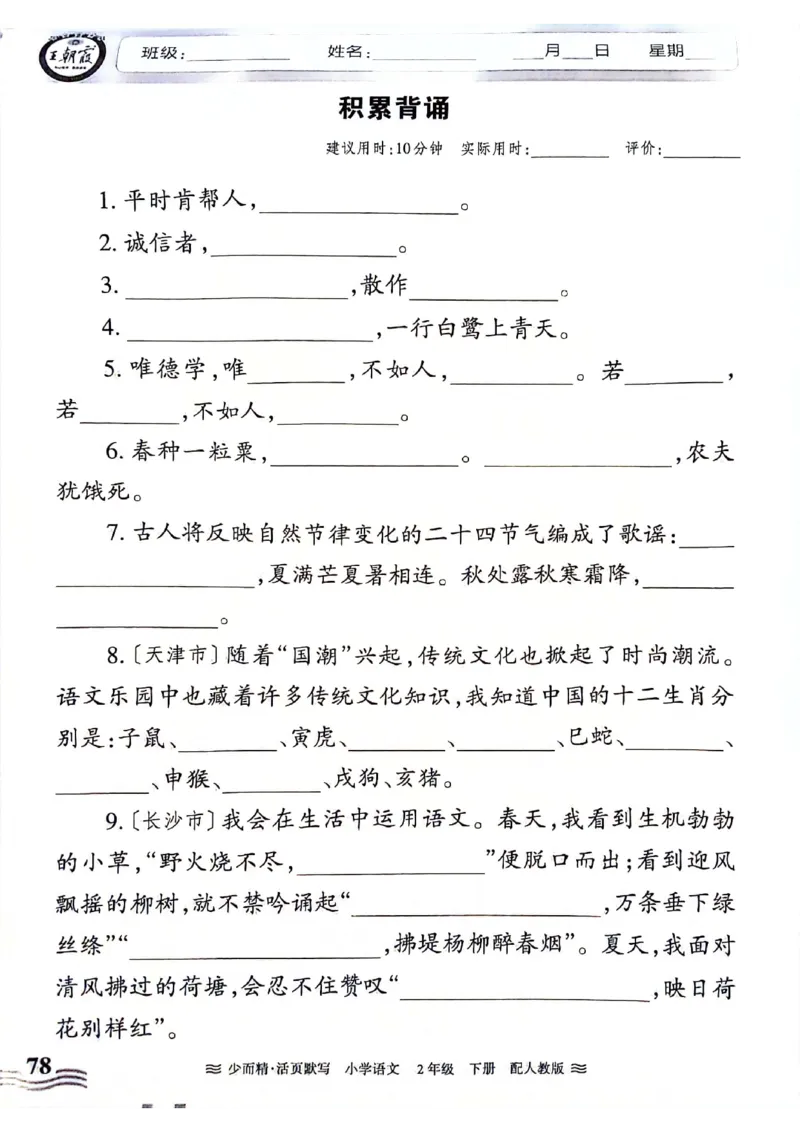 王朝霞 班级:__________ 姓名:__________ ___月___日 星期____
积累背诵
建议用时:10分钟 实际用时:________ 评价:________
1. 平时肯帮人,____________________。
2. 诚信者,____________________。
3. ____________________,散作______________。
4. ____________________,一行白鹭上青天。
5. 唯德学,唯________,不如人,__________。若________,
若________,不如人,__________。
6. 春种一粒粟,________________。________________,农夫
犹饿死。
7. 古人将反映自然节律变化的二十四节气编成了歌谣:____
________________,夏满芒夏暑相连。秋处露秋寒霜降,________
______________。
8.〔天津市〕随着“国潮”兴起,传统文化也掀起了时尚潮流。
语文乐园中也藏着许多传统文化知识,我知道中国的十二生肖分
别是:子鼠、________、寅虎、________、________、巳蛇、________、
________、申猴、________、戌狗、亥猪。
9.〔长沙市〕我会在生活中运用语文。春天,我看到生机勃勃
的小草,“野火烧不尽,________________”便脱口而出;看到迎风
飘摇的柳树,就不禁吟诵起“____________________,万条垂下绿
丝绦”“____________________,拂堤杨柳醉春烟”。夏天,我面对
清风拂过的荷塘,会忍不住赞叹“____________________,映日荷
花别样红”。
78 少而精·活页默写 小学语文 2年级 下册 配人教版